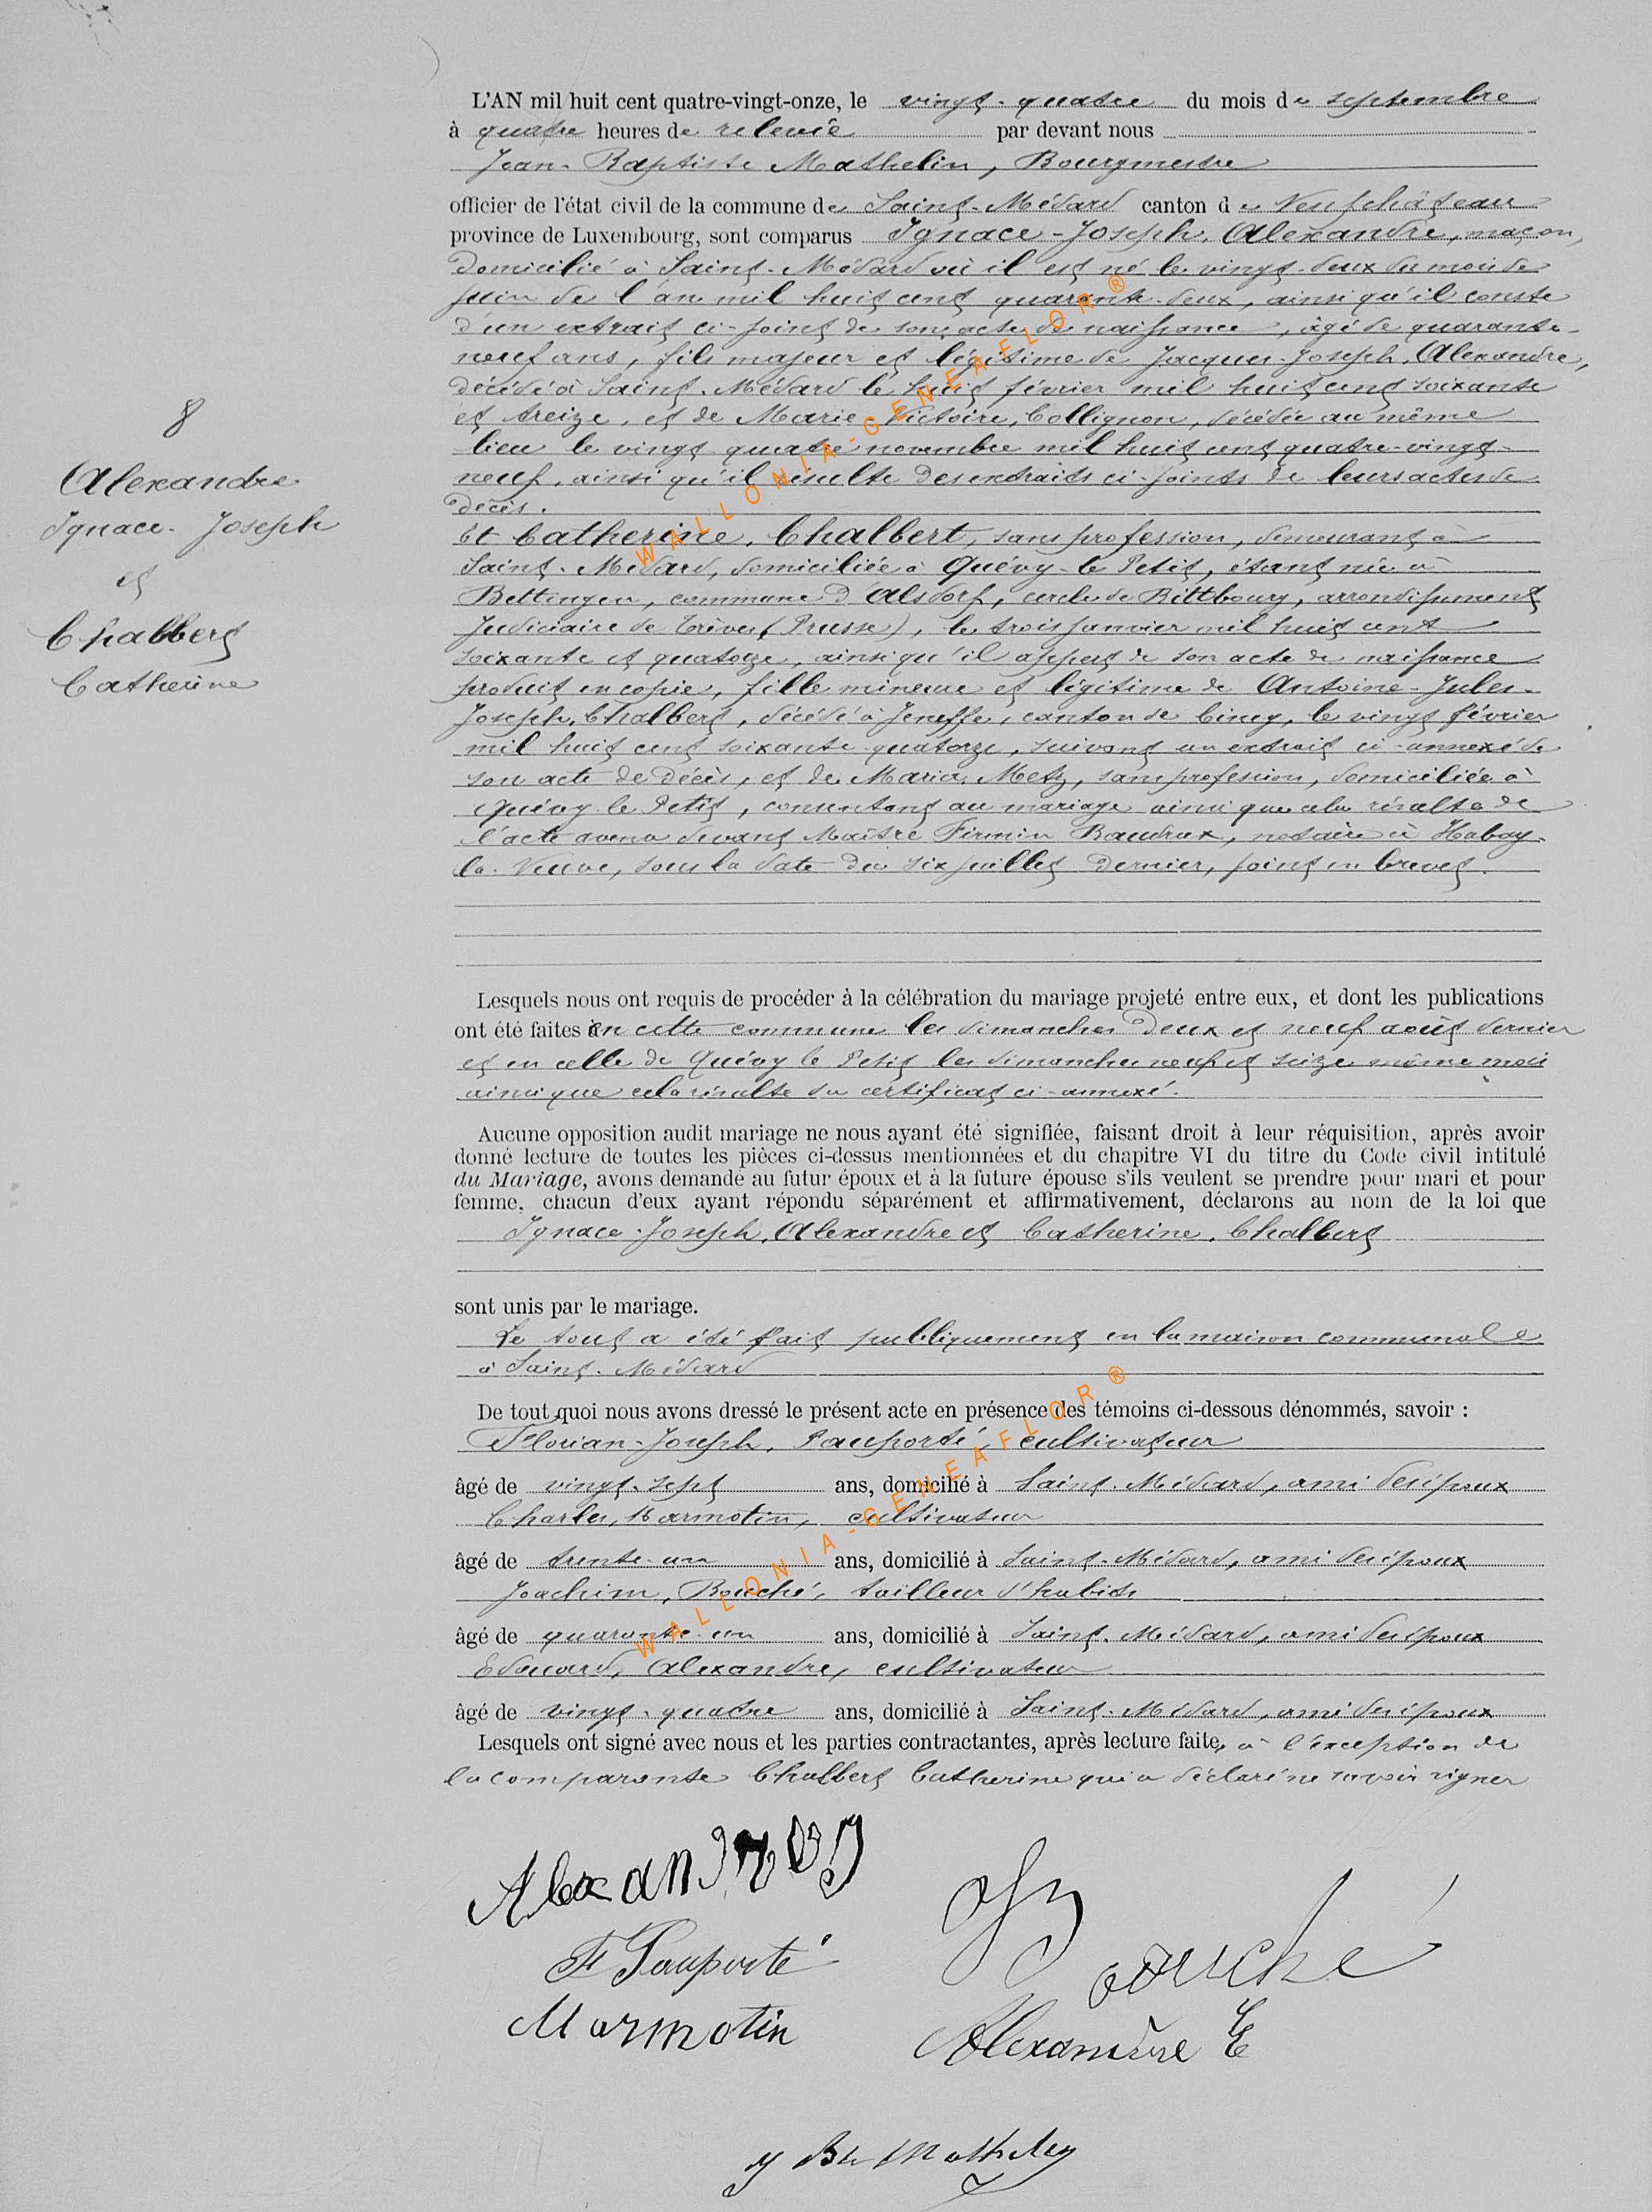 L'AN mil huit cent quatre-vingt-onze, le vingt-quatre du mois de septembre
à quatre heures de relevée par devant nous
Jean-Baptiste Mathelin, Bourgmestre
officier de l'état civil de la commune de Saint-Médard canton de Neufchâteau
province de Luxembourg, sont comparus Ignace-Joseph, Alexandre, maçon,
domicilié à Saint-Médard où il est né le vingt-deux du mois de
juin de l'an mil huit cent quarante-deux, ainsi qu'il conste
d'un extrait ci-joint de son acte de naissance, âgé de quarante-
neuf ans, fils majeur et légitime de Jacques-Joseph, Alexandre,
décédé à Saint-Médard le huit février mil huit cent soixante
et treize, et de Marie-Victoire, Collignon, décédée au même
lieu le vingt quatre novembre mil huit cent quatre-vingt-
neuf, ainsi qu'il résulte des extraits ci-joints de leurs actes de
décès.
8
Alexandre
Ignace-Joseph
et
Chalbert
Catherine
Et Catherine, Chalbert, sans profession, demeurant à
Saint-Médard, domiciliée à Quévy-le Petit, étant née à
Bettingen, commune d'Alsdorf, cercle de Bittbourg, arrondissement
judiciaire de Trèves (Prusse), le trois janvier mil huit cent
soixante et quatorze, ainsi qu'il appert de son acte de naissance
produit en copie, fille mineure et légitime de Antoine-Jules-
Joseph, Chalbert, décédé à Jeneffe, canton de Ciney, le vingt février
mil huit cent soixante-quatorze, suivant un extrait ci-annexé de
son acte de décès, et de Maria, Metz, sans profession, domiciliée à
Quévy-le Petit, consentant au mariage ainsi que cela résulte de
l'acte avenu devant Maître Firmin Baudrux, notaire à Habay-
la-Neuve, sous la date du six juillet dernier, joint en brevet.
Lesquels nous ont requis de procéder à la célébration du mariage projeté entre eux, et dont les publications
ont été faites en cette commune les dimanches deux et neuf août dernier
et en celle de Quévy le Petit les dimanches neuf et seize même mois
ainsi que cela résulte du certificat ci-annexé.
Aucune opposition audit mariage ne nous ayant été signifiée, faisant droit à leur réquisition, après avoir
donné lecture de toutes les pièces ci-dessus mentionnées et du chapitre VI du titre du Code civil intitulé
du Mariage, avons demandé au futur époux et à la future épouse s'ils veulent se prendre pour mari et pour
femme, chacun d'eux ayant répondu séparément et affirmativement, déclarons au nom de la loi que
Ignace-Joseph, Alexandre et Catherine, Chalbert
sont unis par le mariage.
Le tout a été fait publiquement en la maison communale
à Saint-Médard
De tout quoi nous avons dressé le présent acte en présence des témoins ci-dessous dénommés, savoir :
Florian-Joseph, Pauporté, cultivateur
âgé de vingt-sept ans, domicilié à Saint-Médard, ami des époux
Charles, Marmotin, cultivateur
âgé de trente-un ans, domicilié à Saint-Médard, ami des époux
Joachim, Bouché, tailleur d'habits
âgé de quarante-un ans, domicilié à Saint-Médard, ami des époux
Edouard, Alexandre, cultivateur
âgé de vingt-quatre ans, domicilié à Saint-Médard, ami des époux
Lesquels ont signé avec nous et les parties contractantes, après lecture faite, à l'exception de
la comparante Chalbert Catherine qui a déclaré ne savoir signer
F Pauporté
Bouché
Marmotin
Alexandre E
J Bte Mathelin
WALLONIA-GENEAFLOR ®
WALLONIA-GENEAFLOR ®